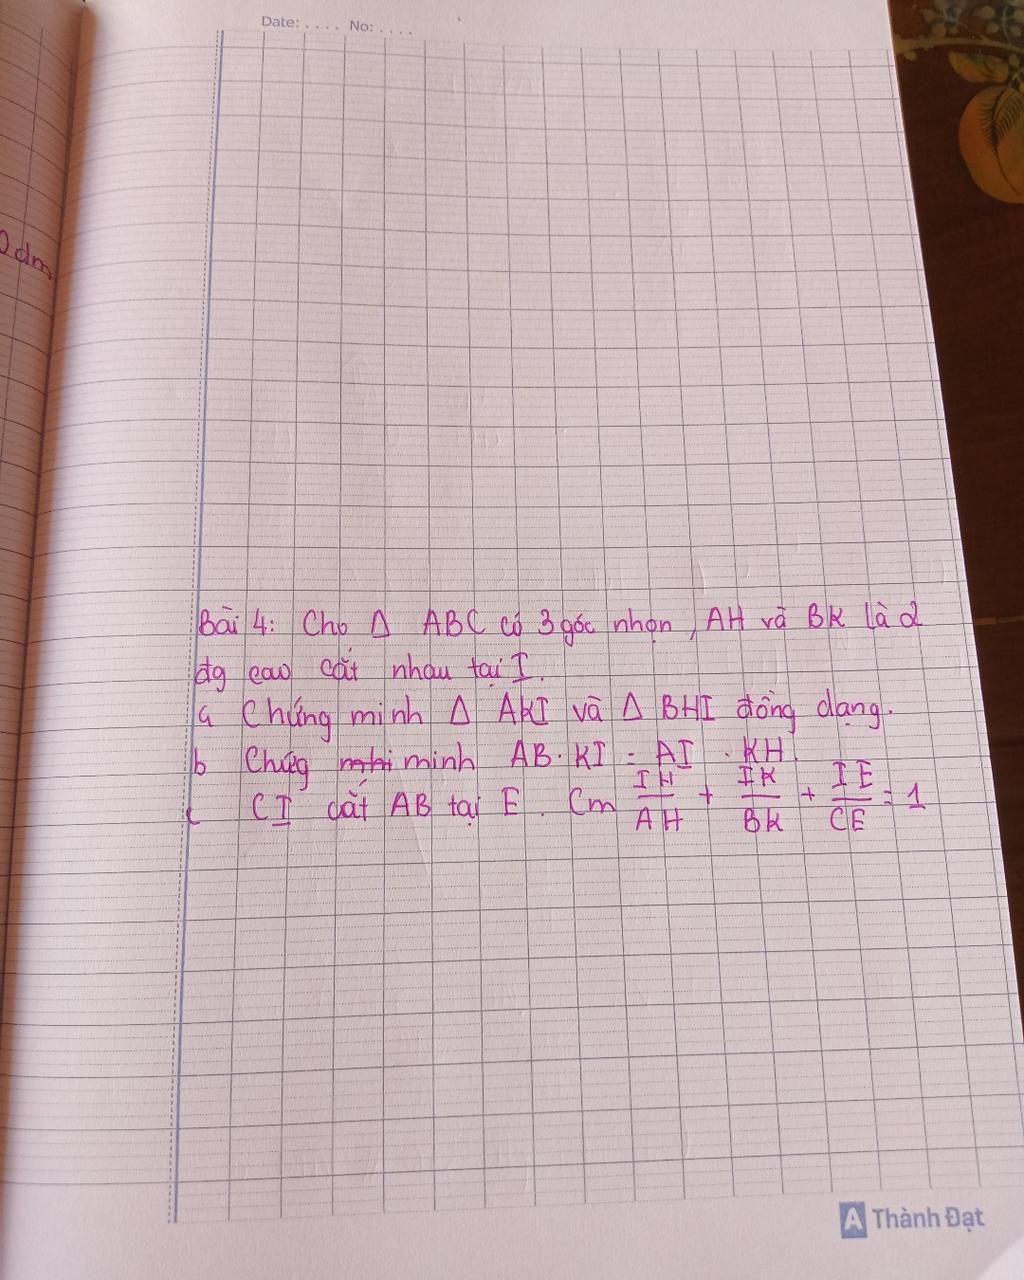 Date: . . . . No: . . . .
0 dm
Bài 4: Cho Δ ABC có 3 góc nhọn, AH và BK là 2
đg cao cắt nhau tại I.
a Chứng minh Δ AKI và Δ BHI đồng dạng.
b Chứg mhi minh AB . KI = AI . KH.
c CI cắt AB tại E. Cm IH/AH + IK/BK + IE/CE = 1
A Thành Đạt